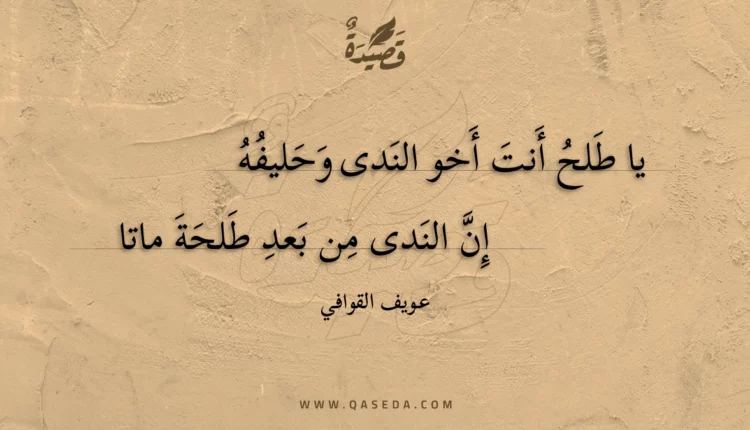 قَصِيْدَةٌ
يا طَلحُ أَنتَ أَخو النَدى وَحَليفُهُ
إِنَّ النَدى مِن بَعدِ طَلحَةَ ماتا
عويف القوافي
WWW.QASEDA.COM